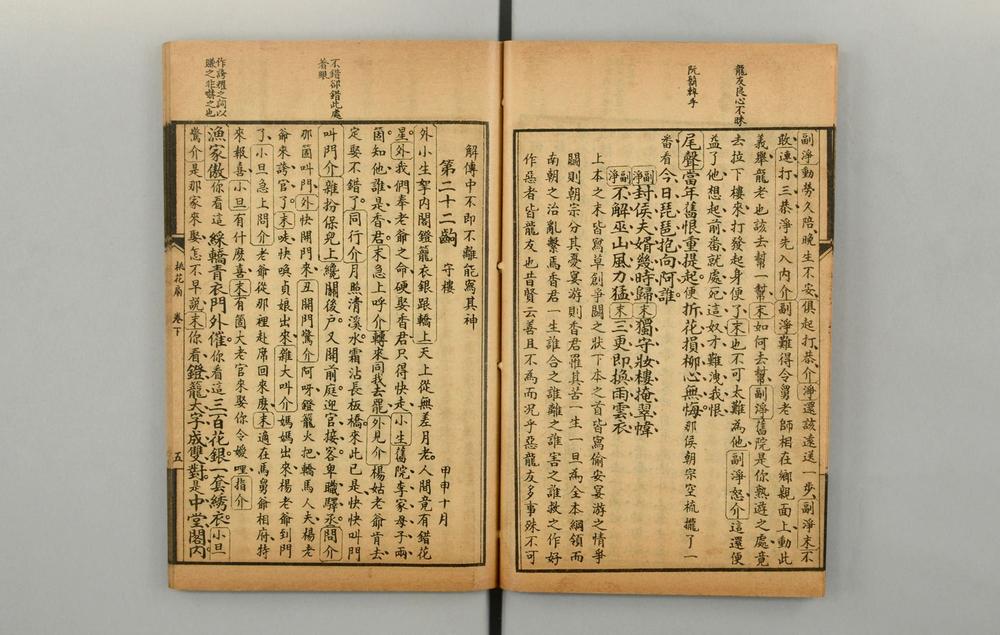 龍友良心不昧
阮鬍辣手
副淨動勞久陪晚生不安俱起打恭介淨還該遠送一步副淨末不
敢連打三恭淨先入內介副淨難得令舅老師相在鄉親面上動此
義舉龍老也該去幫一幫末如何去幫副淨舊院是你熟遊之處竟
去拉下樓來打發起身便了末也不可太難為他副淨怒介這還便
益了他想起前番就處死這奴才難洩我恨
尾聲當年舊恨重提起便折花損柳心無悔那侯朝宗空梳攏了一
番看今日琵琶抱向阿誰
副淨封侯夫婿幾時歸末獨守妝樓掩翠幃
副淨不解巫山風力猛末三更即換雨雲衣
上本之末皆寫草創爭鬭之狀下本之首皆寫偷安宴游之情爭
鬭則朝宗分其憂宴游則香君罹其苦一生一旦為全本綱領而
南朝之治亂繫焉香君一生誰合之誰離之誰害之誰救之作好
作惡者皆龍友也昔賢云善且不為而況乎惡龍友多事殊不可
不錯卻錯此處
著眼
作誇耀之詞以
賺之非嚇之也
解傳中不即不離能寫其神
第二十二齣 守樓 甲申十月
外小生拏內閣鐙籠衣銀跟轎上天上從無差月老人間竟有錯花
星外我們奉老爺之命硬娶香君只得快走小生舊院李家母子兩
箇知他誰是香君末急上呼介轉來同我去罷外見介楊姑老爺肯去
定娶不錯了同行介月照清溪水霜沾長板橋來此已是快快叫門
叫門介雜扮保兒上纔關後戶又開前庭迎官接客卑職驛丞問介
那箇叫門外快開門來丑開門驚介阿呀鐙籠火把轎馬人夫楊老
爺來誇官了末唗快喚貞娘出來雜大叫介媽媽出來楊老爺到門
了小旦急上問介老爺從那裡赴席回來麽末適在馬舅爺相府特
來報喜小旦有什麽喜末有箇大老官來娶你令嬡哩指介
漁家傲你看這綵轎青衣門外催你看這三百花銀一套繡衣小旦
驚介是那家來娶怎不早說末你看鐙籠大字成雙對是中堂閣內
桃花扇 卷下
五